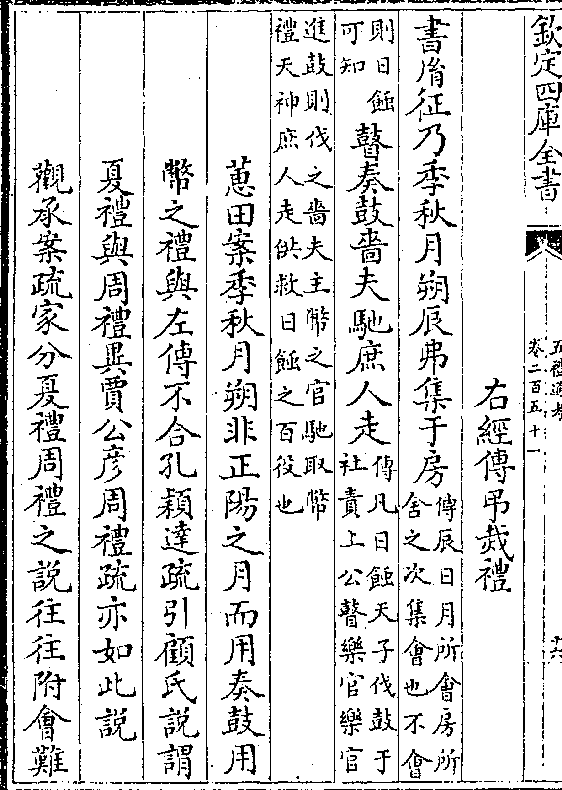 欽定四庫全書
五禮通考
卷二百五十一
十六
右經傳弔烖禮
書胤征乃季秋月朔辰弗集于房傳辰日月所會房所
舍之次集會也不會
則日蝕
可知
瞽奏鼓嗇夫馳庶人走傳凡日蝕天子伐鼓于
社責上公瞽樂官樂官
進鼓則伐之嗇夫主幣之官馳取幣
禮天神庶人走供救日蝕之百役也
蕙田案季秋月朔非正陽之月而用奏鼓用
幣之禮與左傳不合孔穎達疏引顧氏說謂
夏禮與周禮異賈公彦周禮疏亦如此說
觀承案疏家分夏禮周禮之說往往附會難